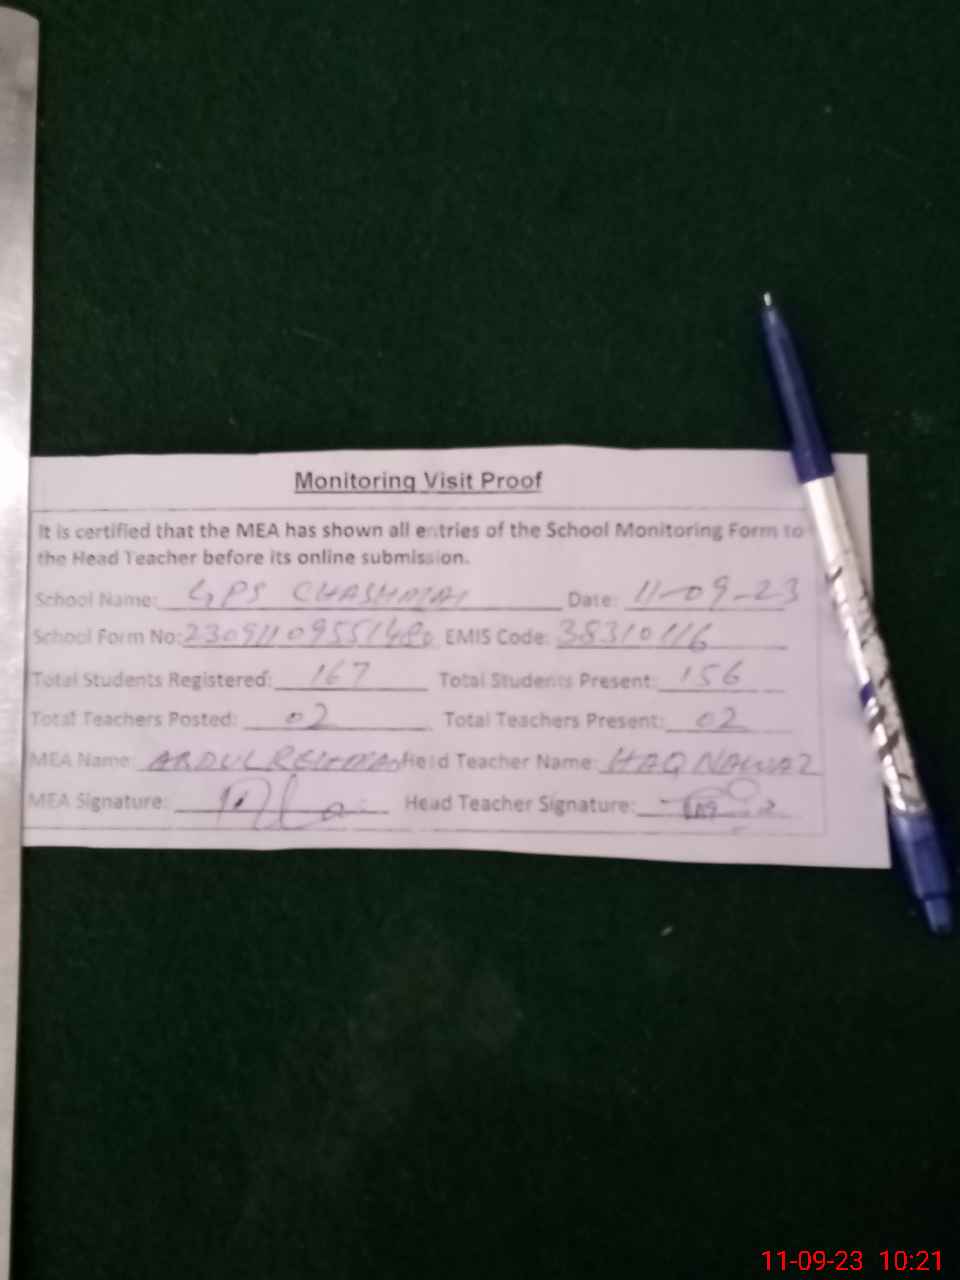 Monitoring Visit Proof
It is certified that the MEA has shown all entries of the School Monitoring Form to
the Head Teacher before its online submission.
School Name: GPS CHASHMAI Date: 11-09-23
School Form No: EMIS Code: 38310116
Total Students Registered: 167 Total Students Present: 156
Total Teachers Posted: 02 Total Teachers Present: 02
MEA Name: ABDUL REHMAN Head Teacher Name: HAQ NAWAZ
MEA Signature: Head Teacher Signature:
11-09-23 10:21